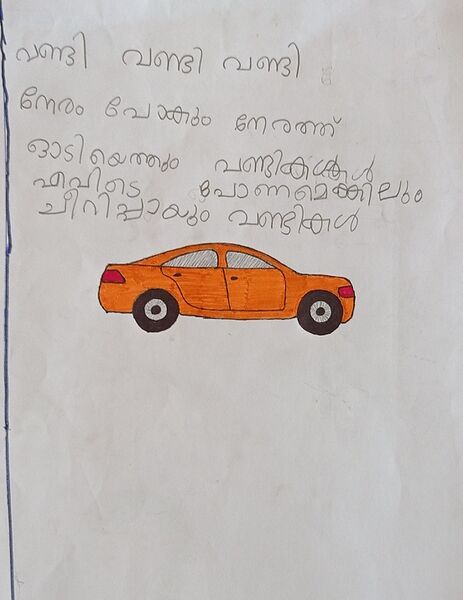 വണ്ടി വണ്ടി വണ്ടി
നേരം പോകും നേരത്ത്
ഓടിയെത്തും വണ്ടികൾകൾ
എവിടെ പോണമെങ്കിലും
ചീറിപ്പായും വണ്ടികൾ